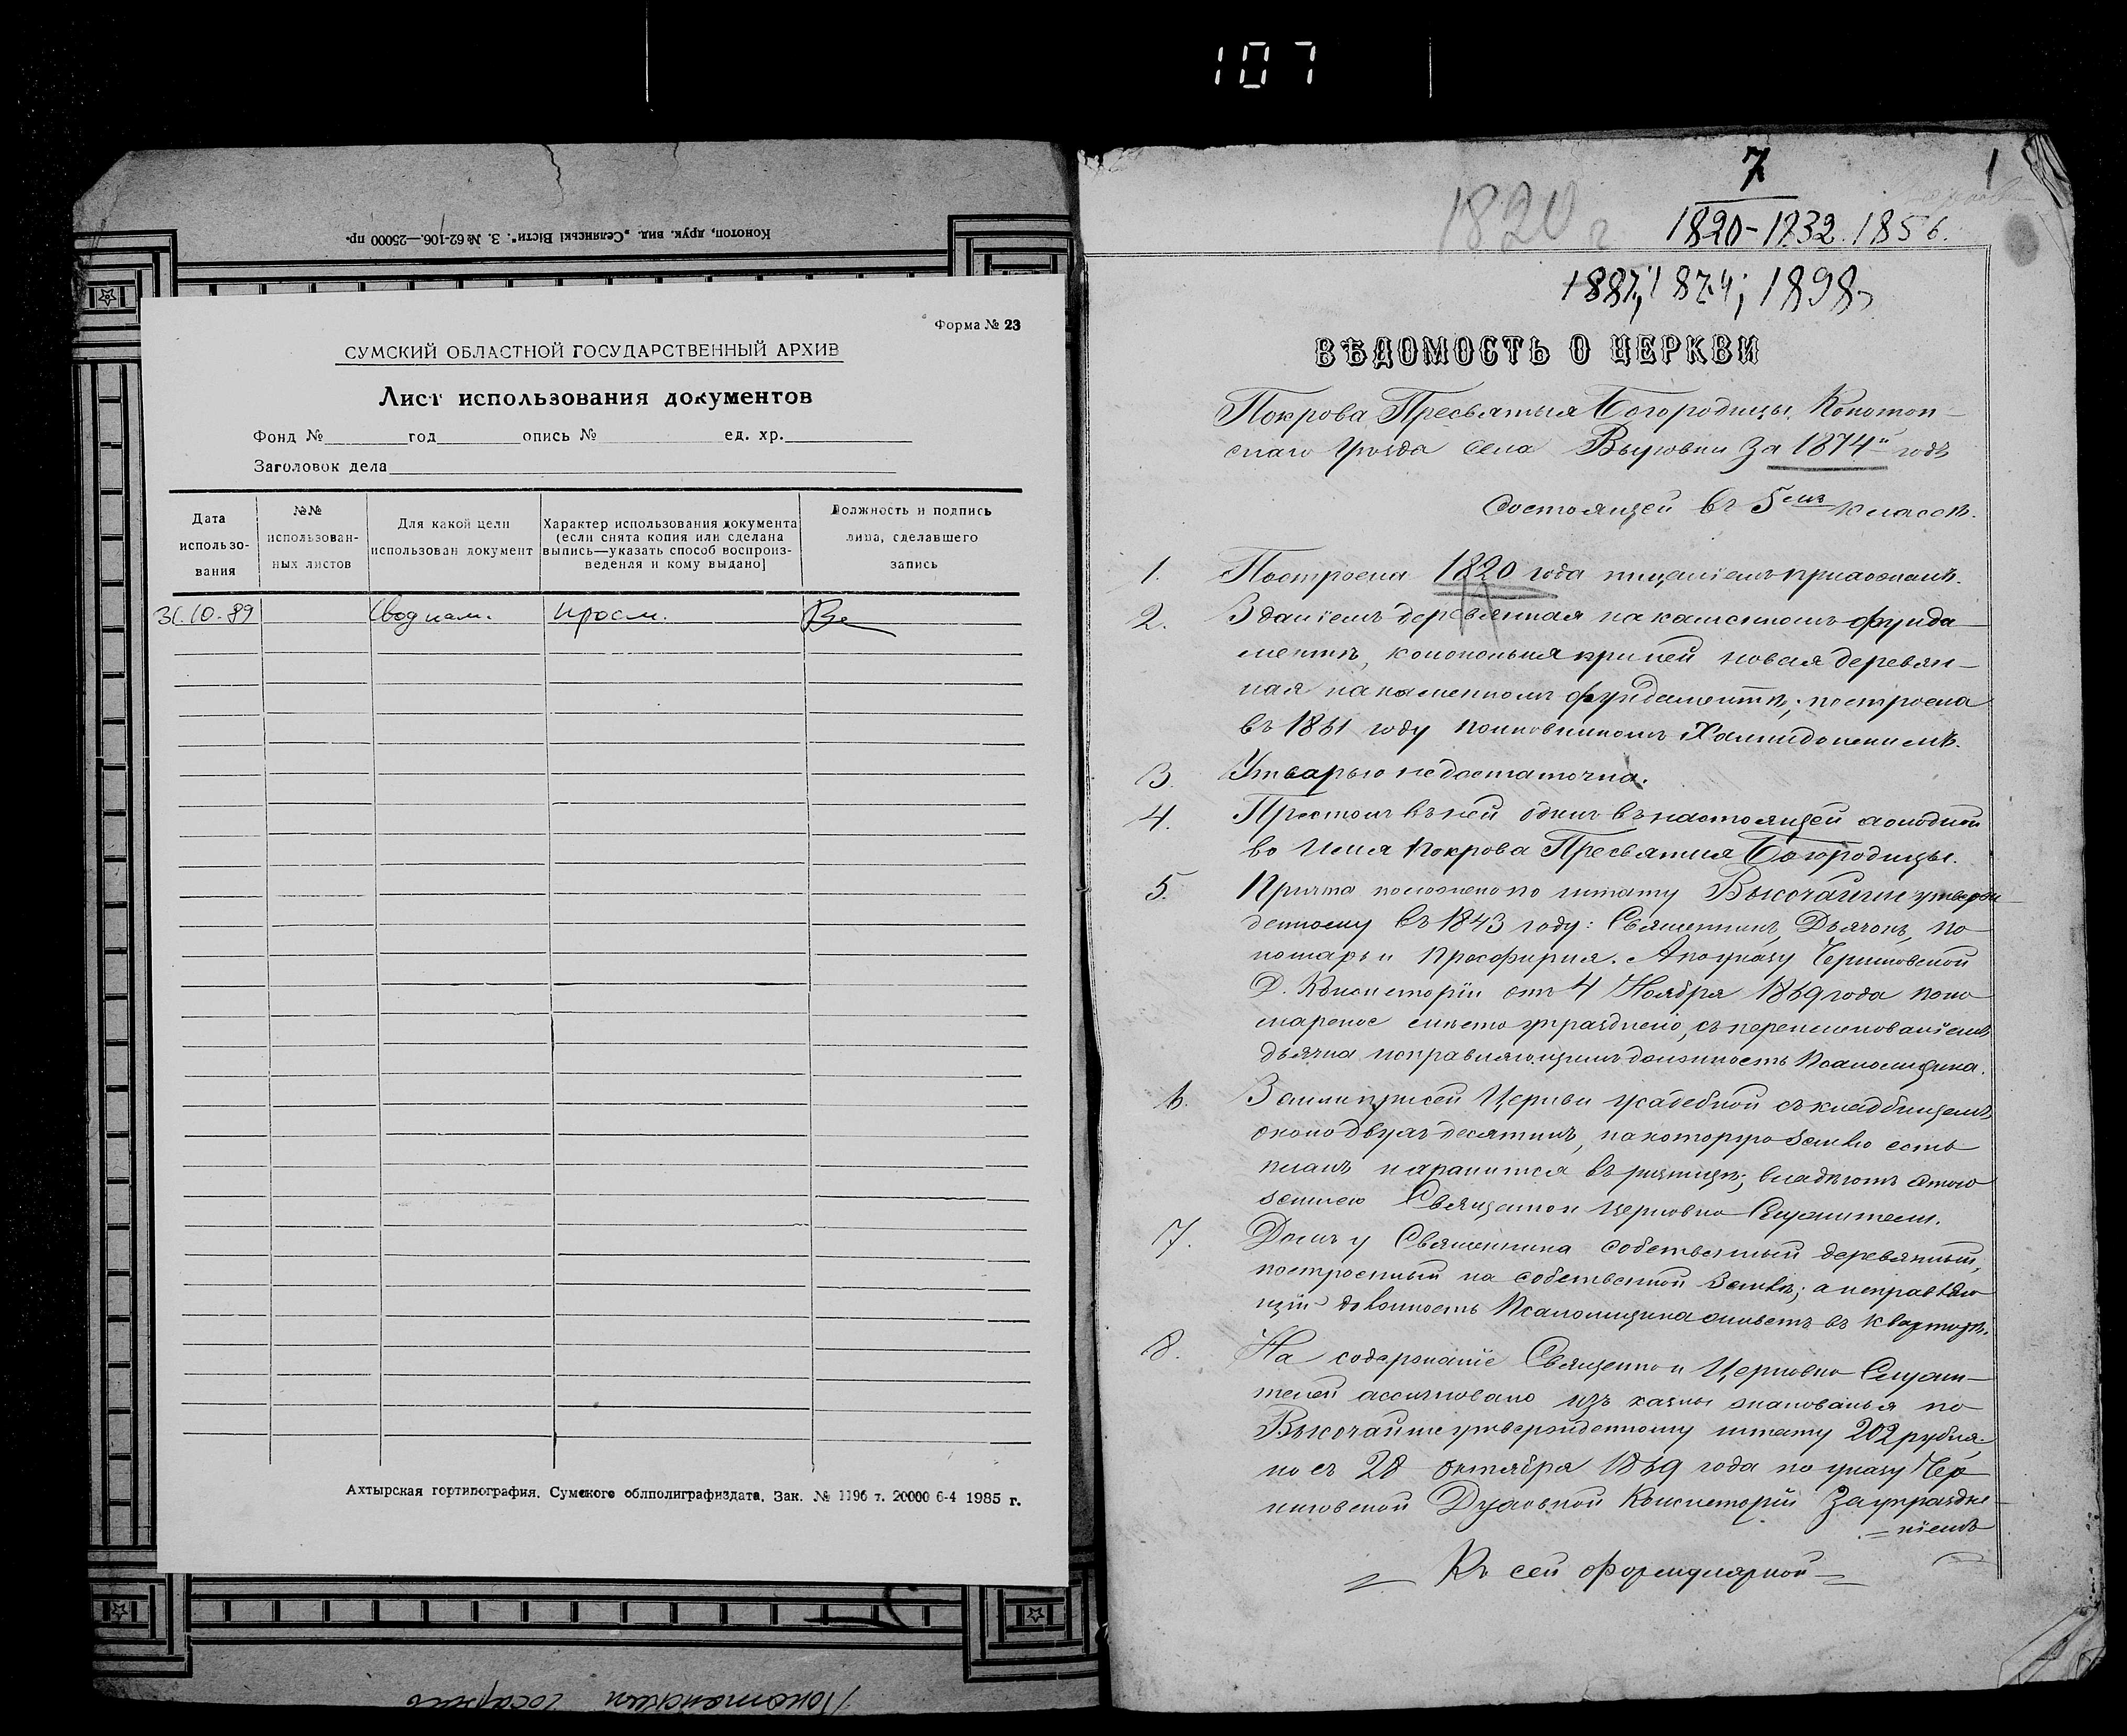 107
Конотоп, друк. вид. „Селянські Вісти“. З. № 62-106.—25000 пр.
Форма № 23
СУМСКИЙ ОБЛАСТНОЙ ГОСУДАРСТВЕННЫЙ АРХИВ
Лист использования документов
Фонд № год опись № ед. хр.
Заголовок дела
Дата использо-вания
№№ использован-ных листов
Для какой цели использован документ
Характер использования документа (если снята копия или сделана выпись—указать способ воспроиз-ведения и кому выдано]
Должность и подпись лица, сделавшего запись
31.10.89 просм.
Ахтырская гортипография. Сумского облполиграфиздата. Зак. № 1196 т. 20000 6-4 1985 г.
7 1
1820 г 1820-1832. 1856.
1887, 1874; 1898
ВѢДОМОСТЬ О ЦЕРКВИ
Покрова Пресвятыя Богородицы, Конотоп-
скаго Уѣзда села Выровки За 1874й годъ
Состоящей въ 5мъ классѣ.
1. Построена 1820 года тщаніемъ прихожанъ.
2. Зданіемъ деревянная на каменномъ фунда-
ментѣ, колокольня при ней новая деревян-
ная на каменномъ фундаментѣ; построена
въ 1861 году полковникомъ
3. Утварью недостаточна.
4. Престолъ въ ней одинъ въ настоящей холодной
во Имя Покрова Пресвятыя Богородицы.
5. Причта положено по штату Высочайше утверж-
денному въ 1843 году: Священникъ, Дьячокъ, По-
номарь и Просфирня. А по указу Черниговской
Д. Консисторіи отъ 4 Ноября 1869 года поно-
марское мѣсто упразднено, съ переименованіемъ
дьячка исправляющимъ должность Псаломщика.
6. Земли при сей Церкви усадебной съ кладбищемъ
около двухъ десятинъ, на которую землю есть
планъ и хранится въ ризницѣ; владѣютъ этою
землею Священно и церковно Служители.
7. Домъ у Священника собственный деревянный,
построенный на собственной землѣ; а исправляю
щій должность Псаломщика живетъ въ квартирѣ.
8. На содержаніе Священно и Церковно Служи-
телей ассигновано изъ казны жалованья по
Высочайше утвержденному штату 202 рубля.
но съ 28 Октября 1869 года по указу Чер-
ниговской Духовной Консисторіи За упраздне-
=ніемъ
= Къ сей формулярной =